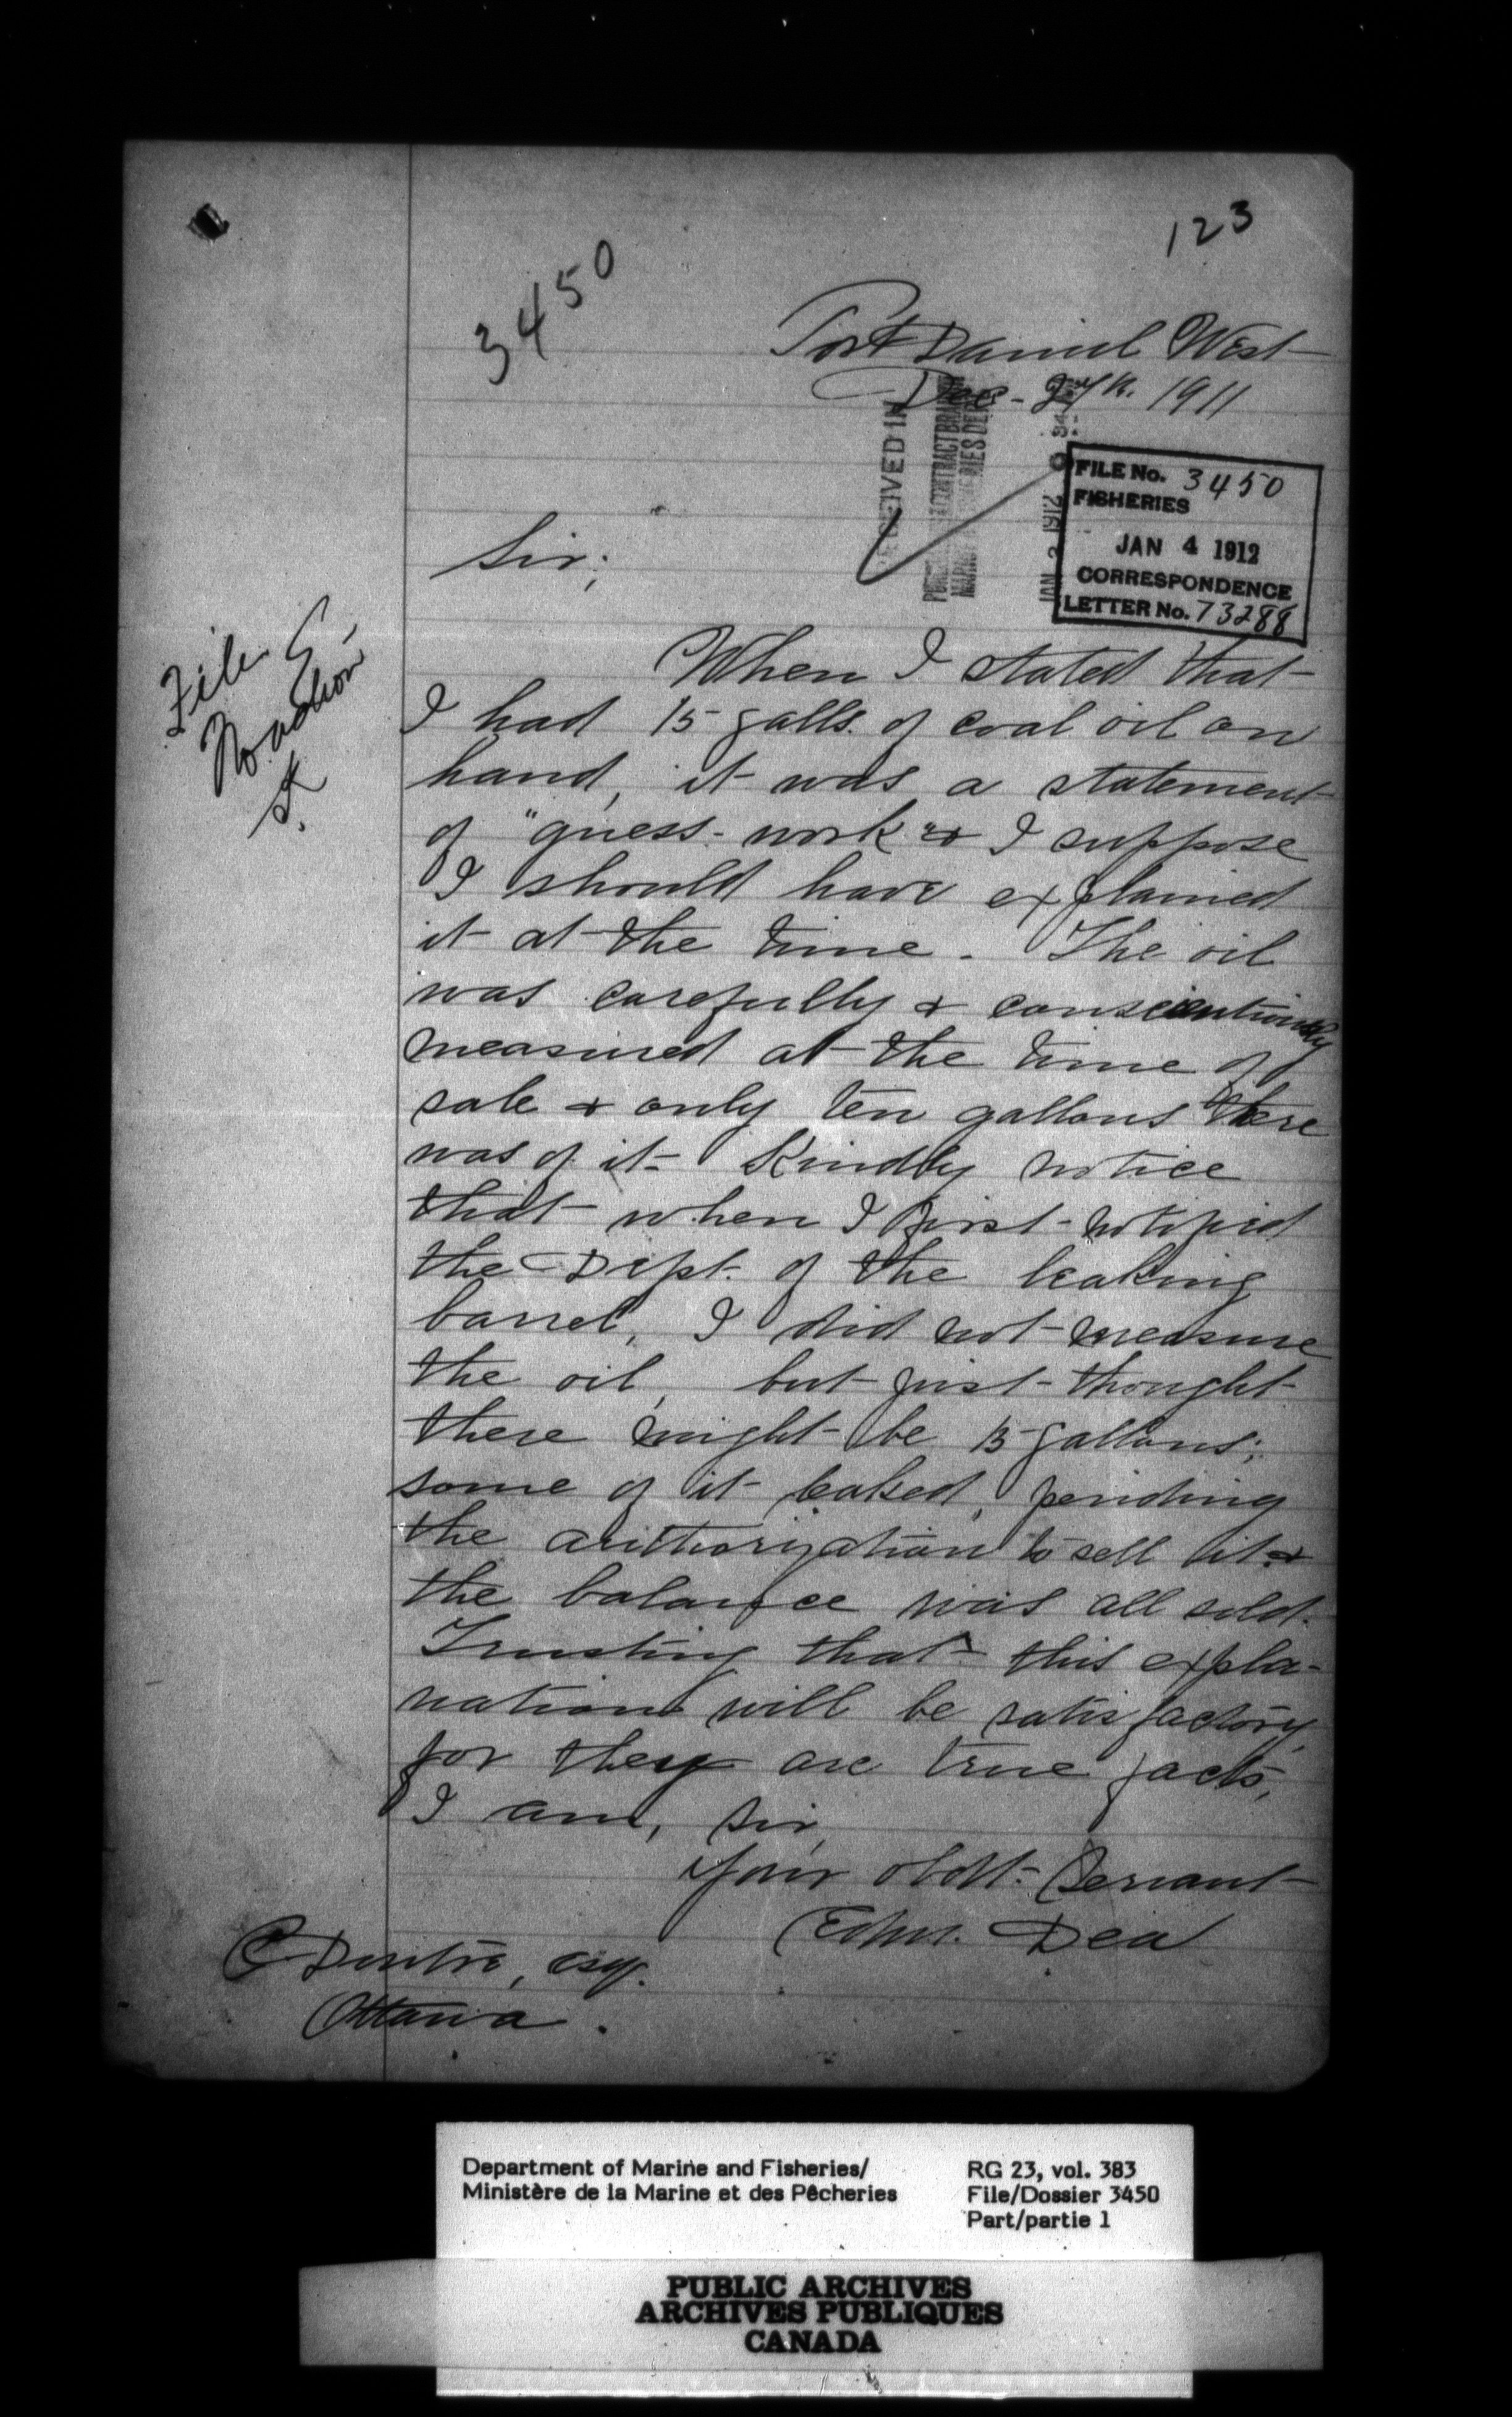 123
3450
Port Daniel West
Dec - 27th. 1911
RECEIVED IN
JAN 2 1912
FILE No. 3450
FISHERIES
JAN 4 1912
CORRESPONDENCE
LETTER No. 73288
Sir;
File
No action
When I stated that
I had 15 galls. of coal oil on
hand, it was a statement
of "guess-work" & I suppose
I should have explained
it at the time. The oil
was carefully & conscientiously
measured at the time of
sale & only ten gallons there
was of it. Kindly notice
that when I first notified
the Dept. of the leaking
barrel, I did not measure
the oil, but just thought
there might be 15 gallons;
some of it leaked, pending
the authorization to sell it &
the balance was all sold.
Trusting that this expla-
nation will be satisfactory,
for they are true facts,
I am, Sir,
Your obdt. Servant
Edm. Dea
C Doutre, esq.
Ottawa.
Department of Marine and Fisheries/
Ministère de la Marine et des Pêcheries
RG 23, vol. 383
File/Dossier 3450
Part/partie 1
PUBLIC ARCHIVES
ARCHIVES PUBLIQUES
CANADA